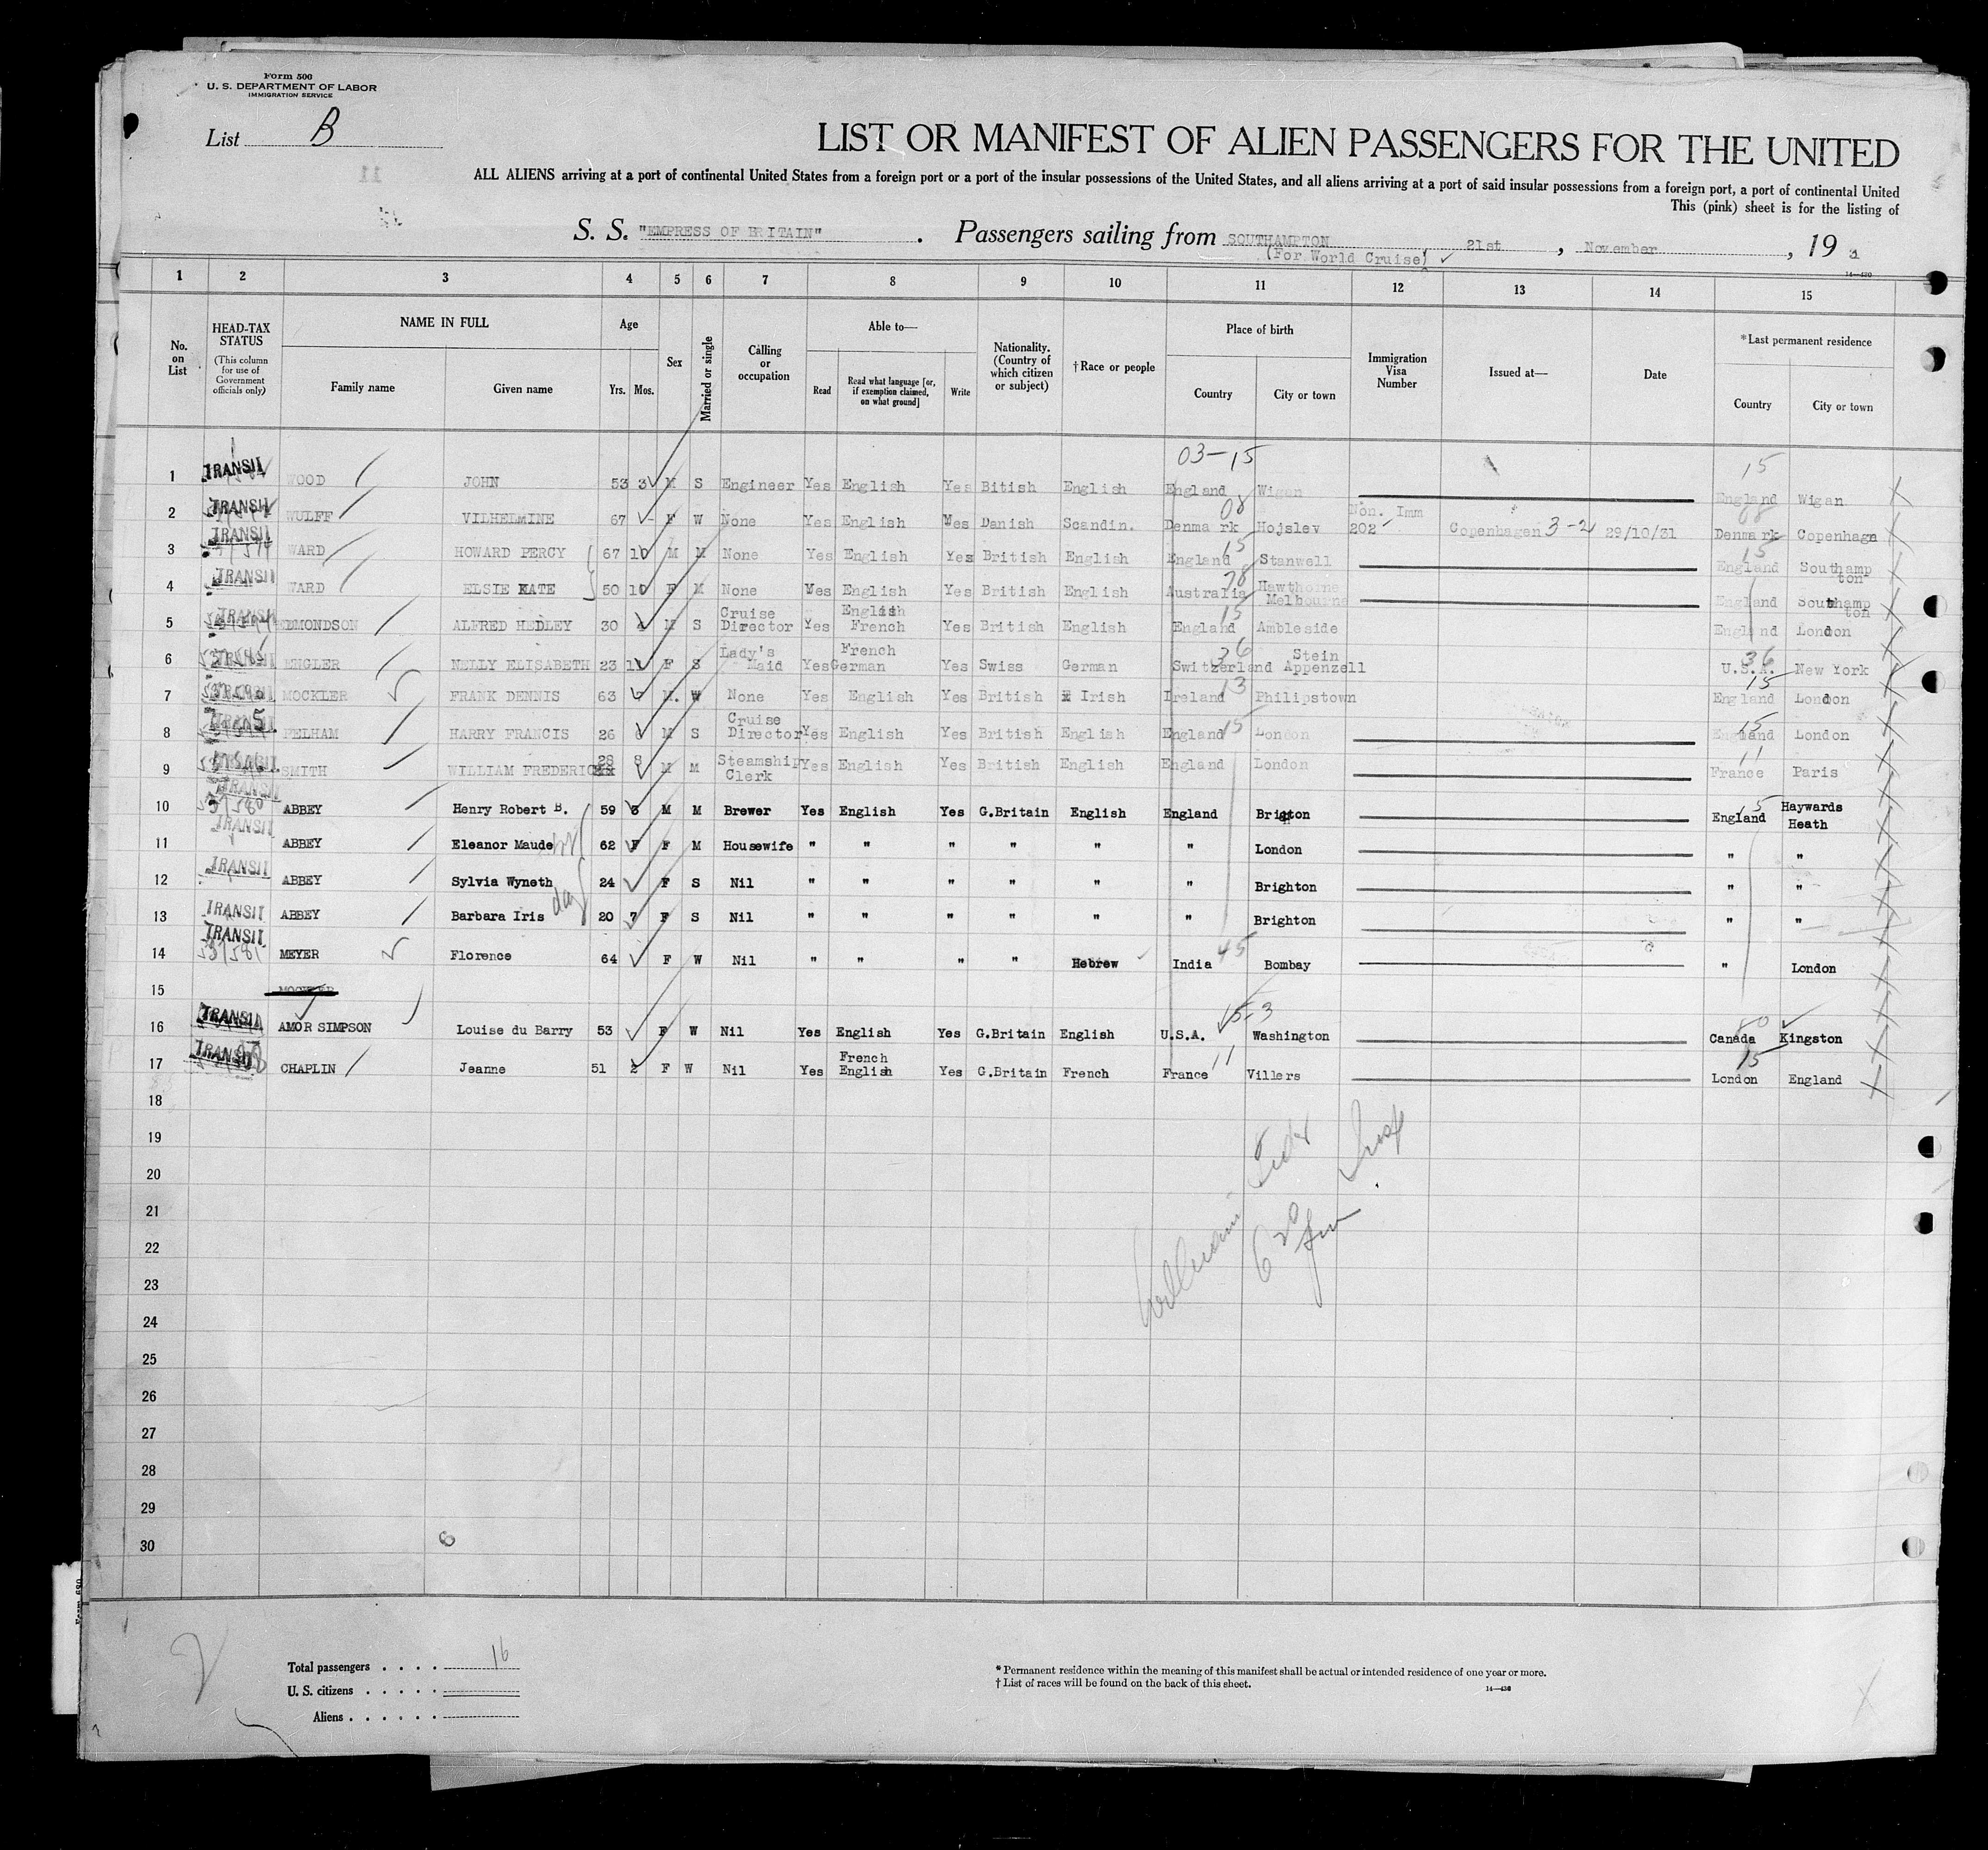 Form 500
U. S. DEPARTMENT OF LABOR
IMMIGRATION SERVICE
List B
LIST OR MANIFEST OF ALIEN PASSENGERS FOR THE UNITED
ALL ALIENS arriving at a port of continental United States from a foreign port or a port of the insular possessions of the United States, and all aliens arriving at a port of said insular possessions from a foreign port, a port of continental United
This (pink) sheet is for the listing of
S. S. "EMPRESS OF BRITAIN". Passengers sailing from SOUTHAMPTON, 21st, November, 19
(For World Cruise)
14—430
1 2 3 4 5 6 7 8 9 10 11 12 13 14 15
No. on List
HEAD-TAX STATUS (This column for use of Government officials only)
NAME IN FULL
Family name Given name
Age Yrs. Mos.
Sex
Married or single
Calling or occupation
Able to— Read Read what language [or, if exemption claimed, on what ground] Write
Nationality. (Country of which citizen or subject)
†Race or people
Place of birth Country City or town
Immigration Visa Number
Issued at—
Date
*Last permanent residence Country City or town
03-15 15
1 TRANSIT WOOD JOHN 53 3 M S Engineer Yes English Yes Bitish English England Wigan England Wigan
2 TRANSIT WULFF VILHELMINE 67 - F W None Yes English Yes Danish Scandin. Denmark 08 Hojslev Non. Imm 202 Copenhagen 3-2 29/10/31 Denmark 08 Copenhagn
3 TRANSIT WARD HOWARD PERCY 67 10 M M None Yes English Yes British English England 15 Stanwell England 15 Southampton
4 TRANSIT WARD ELSIE KATE 50 10 F M None Yes English Yes British English Australia 78 Hawthorne Melbourne England Southampton
5 TRANSIT EDMONDSON ALFRED HEDLEY 30 M S Cruise Director Yes English French Yes British English England 15 Ambleside England London
6 TRANSIT ENGLER NELLY ELISABETH 23 11 F S Lady's Maid Yes French German Yes Swiss German Switzerland 36 Stein Appenzell U.S.A. 36 New York
7 TRANSIT MOCKLER FRANK DENNIS 63 M. W None Yes English Yes British Irish Ireland 13 Philipstown England 15 London
8 TRANSIT PELHAM HARRY FRANCIS 26 6 M S Cruise Director Yes English Yes British English England 15 London England 15 London
9 TRANSIT SMITH WILLIAM FREDERICK 28 8 M M Steamship Clerk Yes English Yes British English England London France 11 Paris
10 TRANSIT ABBEY Henry Robert B. 59 3 M M Brewer Yes English Yes G.Britain English England Brigton England 15 Haywards Heath
11 TRANSIT ABBEY Eleanor Maude 62 F M Housewife " " " " " " London " "
12 TRANSIT ABBEY Sylvia Wyneth 24 F S Nil " " " " " " Brighton " "
13 TRANSIT ABBEY Barbara Iris 20 7 F S Nil " " " " " " Brighton " "
14 TRANSIT MEYER Florence 64 F W Nil " " " " Hebrew India 45 Bombay " London
15 MOCKLER
16 TRANSIT AMOR SIMPSON Louise du Barry 53 F W Nil Yes English Yes G.Britain English U.S.A. Washington Canada Kingston
17 TRANSIT CHAPLIN Jeanne 51 2 F W Nil Yes French English Yes G.Britain French France 11 Villers London 15 England
18
19
20
21
22
23
24
25
26
27
28
29
30
Total passengers . . . . 16
U. S. citizens . . . . .
Aliens . . . . . .
* Permanent residence within the meaning of this manifest shall be actual or intended residence of one year or more.
† List of races will be found on the back of this sheet.
14—430